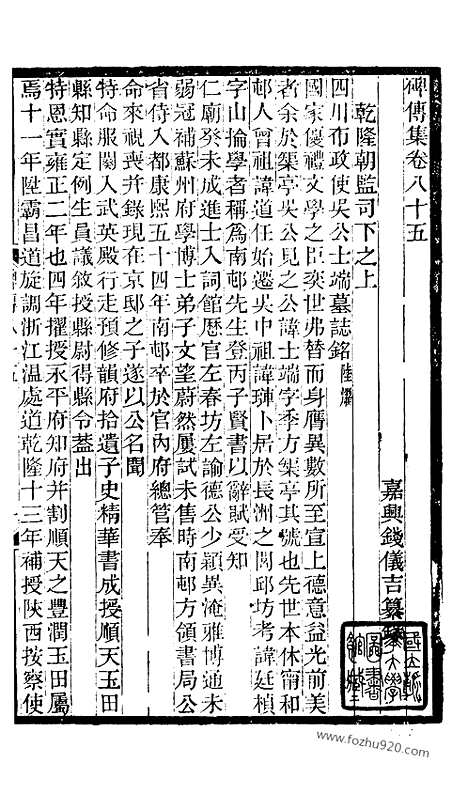 碑傳集卷八十五
嘉興錢儀吉纂錄
乾隆朝監司下之上
四川布政使吳公士端墓誌銘 陸燿
國家優禮文學之臣奕世弗替而身膺異數所至宣上德意益光前美
者余於榘亭吳公見之公諱士端字季方榘亭其號也先世本休甯和
邨人曾祖諱道任始遷吳中祖諱璉卜居於長洲之閶邱坊考諱廷楨
字山掄學者稱為南邨先生登丙子賢書以辭賦受知
仁廟癸未成進士入詞館歷官左春坊左諭德公少穎異淹雅博通未
弱冠補蘇州府學博士弟子文望蔚然屢試未售時南邨方領書局公
省侍入都康熙五十四年南邨卒於官內府總管奉
命來視喪幷錄現在京邸之子遂以公名聞
特命服闋入武英殿行走預修韻府拾遺子史精華書成授順天玉田
縣知縣定例生員議敘授縣尉得縣令葢出
特恩實雍正二年也四年擢授永平府知府幷割順天之豐潤玉田屬
焉十一年陞霸昌道旋調浙江溫處道乾隆十三年補授陝西按察使
www.fozhu920.com